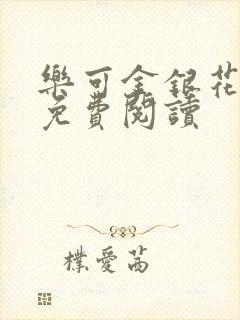 樂可金銀花
免費閱讀
樸愛茜